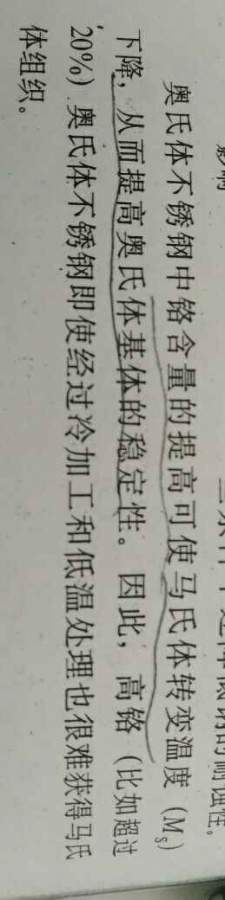 影响
奥氏体不锈钢中铬含量的提高可使马氏体转变温度（Ms）
下降，从而提高奥氏体基体的稳定性。因此，高铬（比如超过
20%）奥氏体不锈钢即使经过冷加工和低温处理也很难获得马氏
体组织。